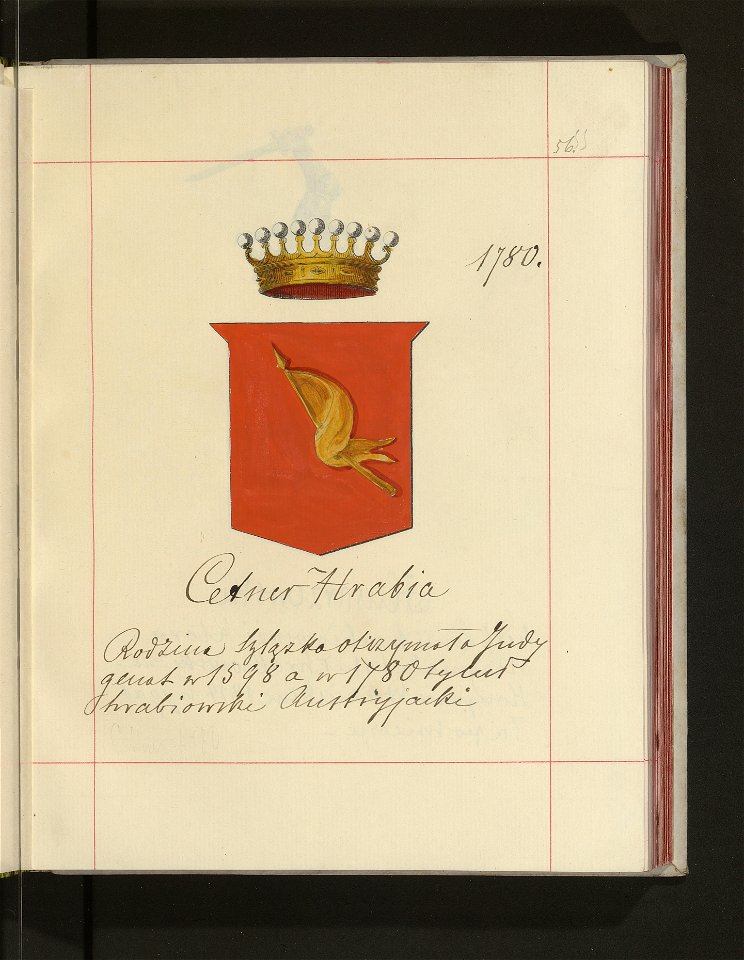 56
1780.
Cetner Hrabia
Rodzina Szlązka otrzymała Indy
genat w 1598 a w 1780 tytuł
hrabiowski Austryjacki